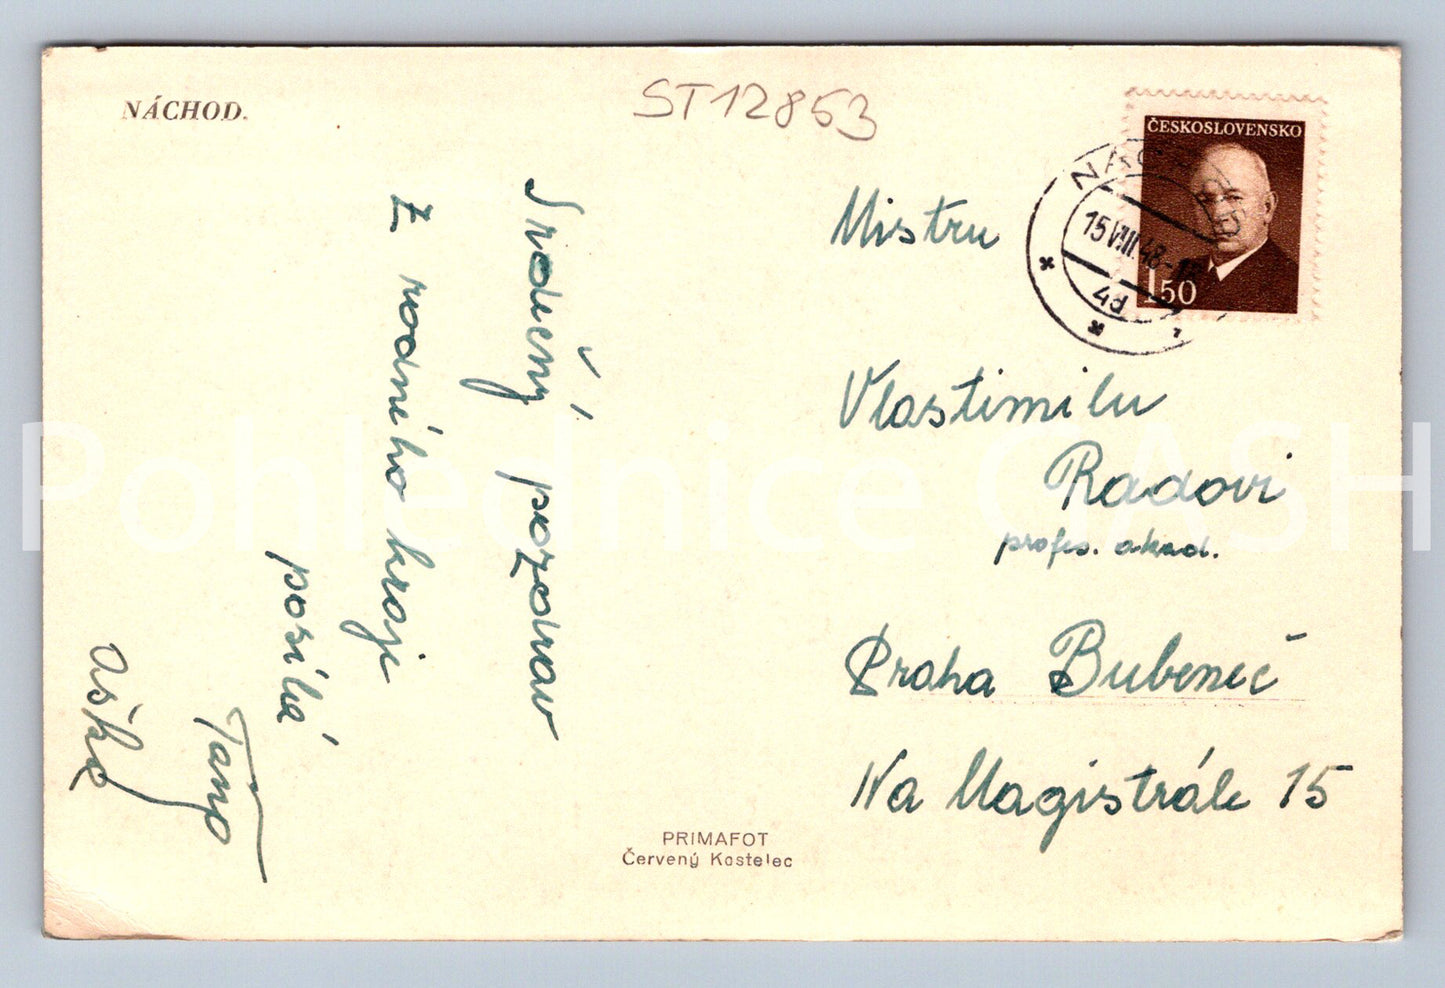 NÁCHOD.
ST12853
ČESKOSLOVENSKO
1.50
NÁCHOD
15.VIII.48-18
4d
Srdečný pozdrav
Z rodného kraje
posílá
Mistru
Vlastimilu
Radovi
profes. akad.
Praha Bubeneč
Na Magistrále 15
PRIMAFOT
Červený Kostelec
Pohlednice GASH